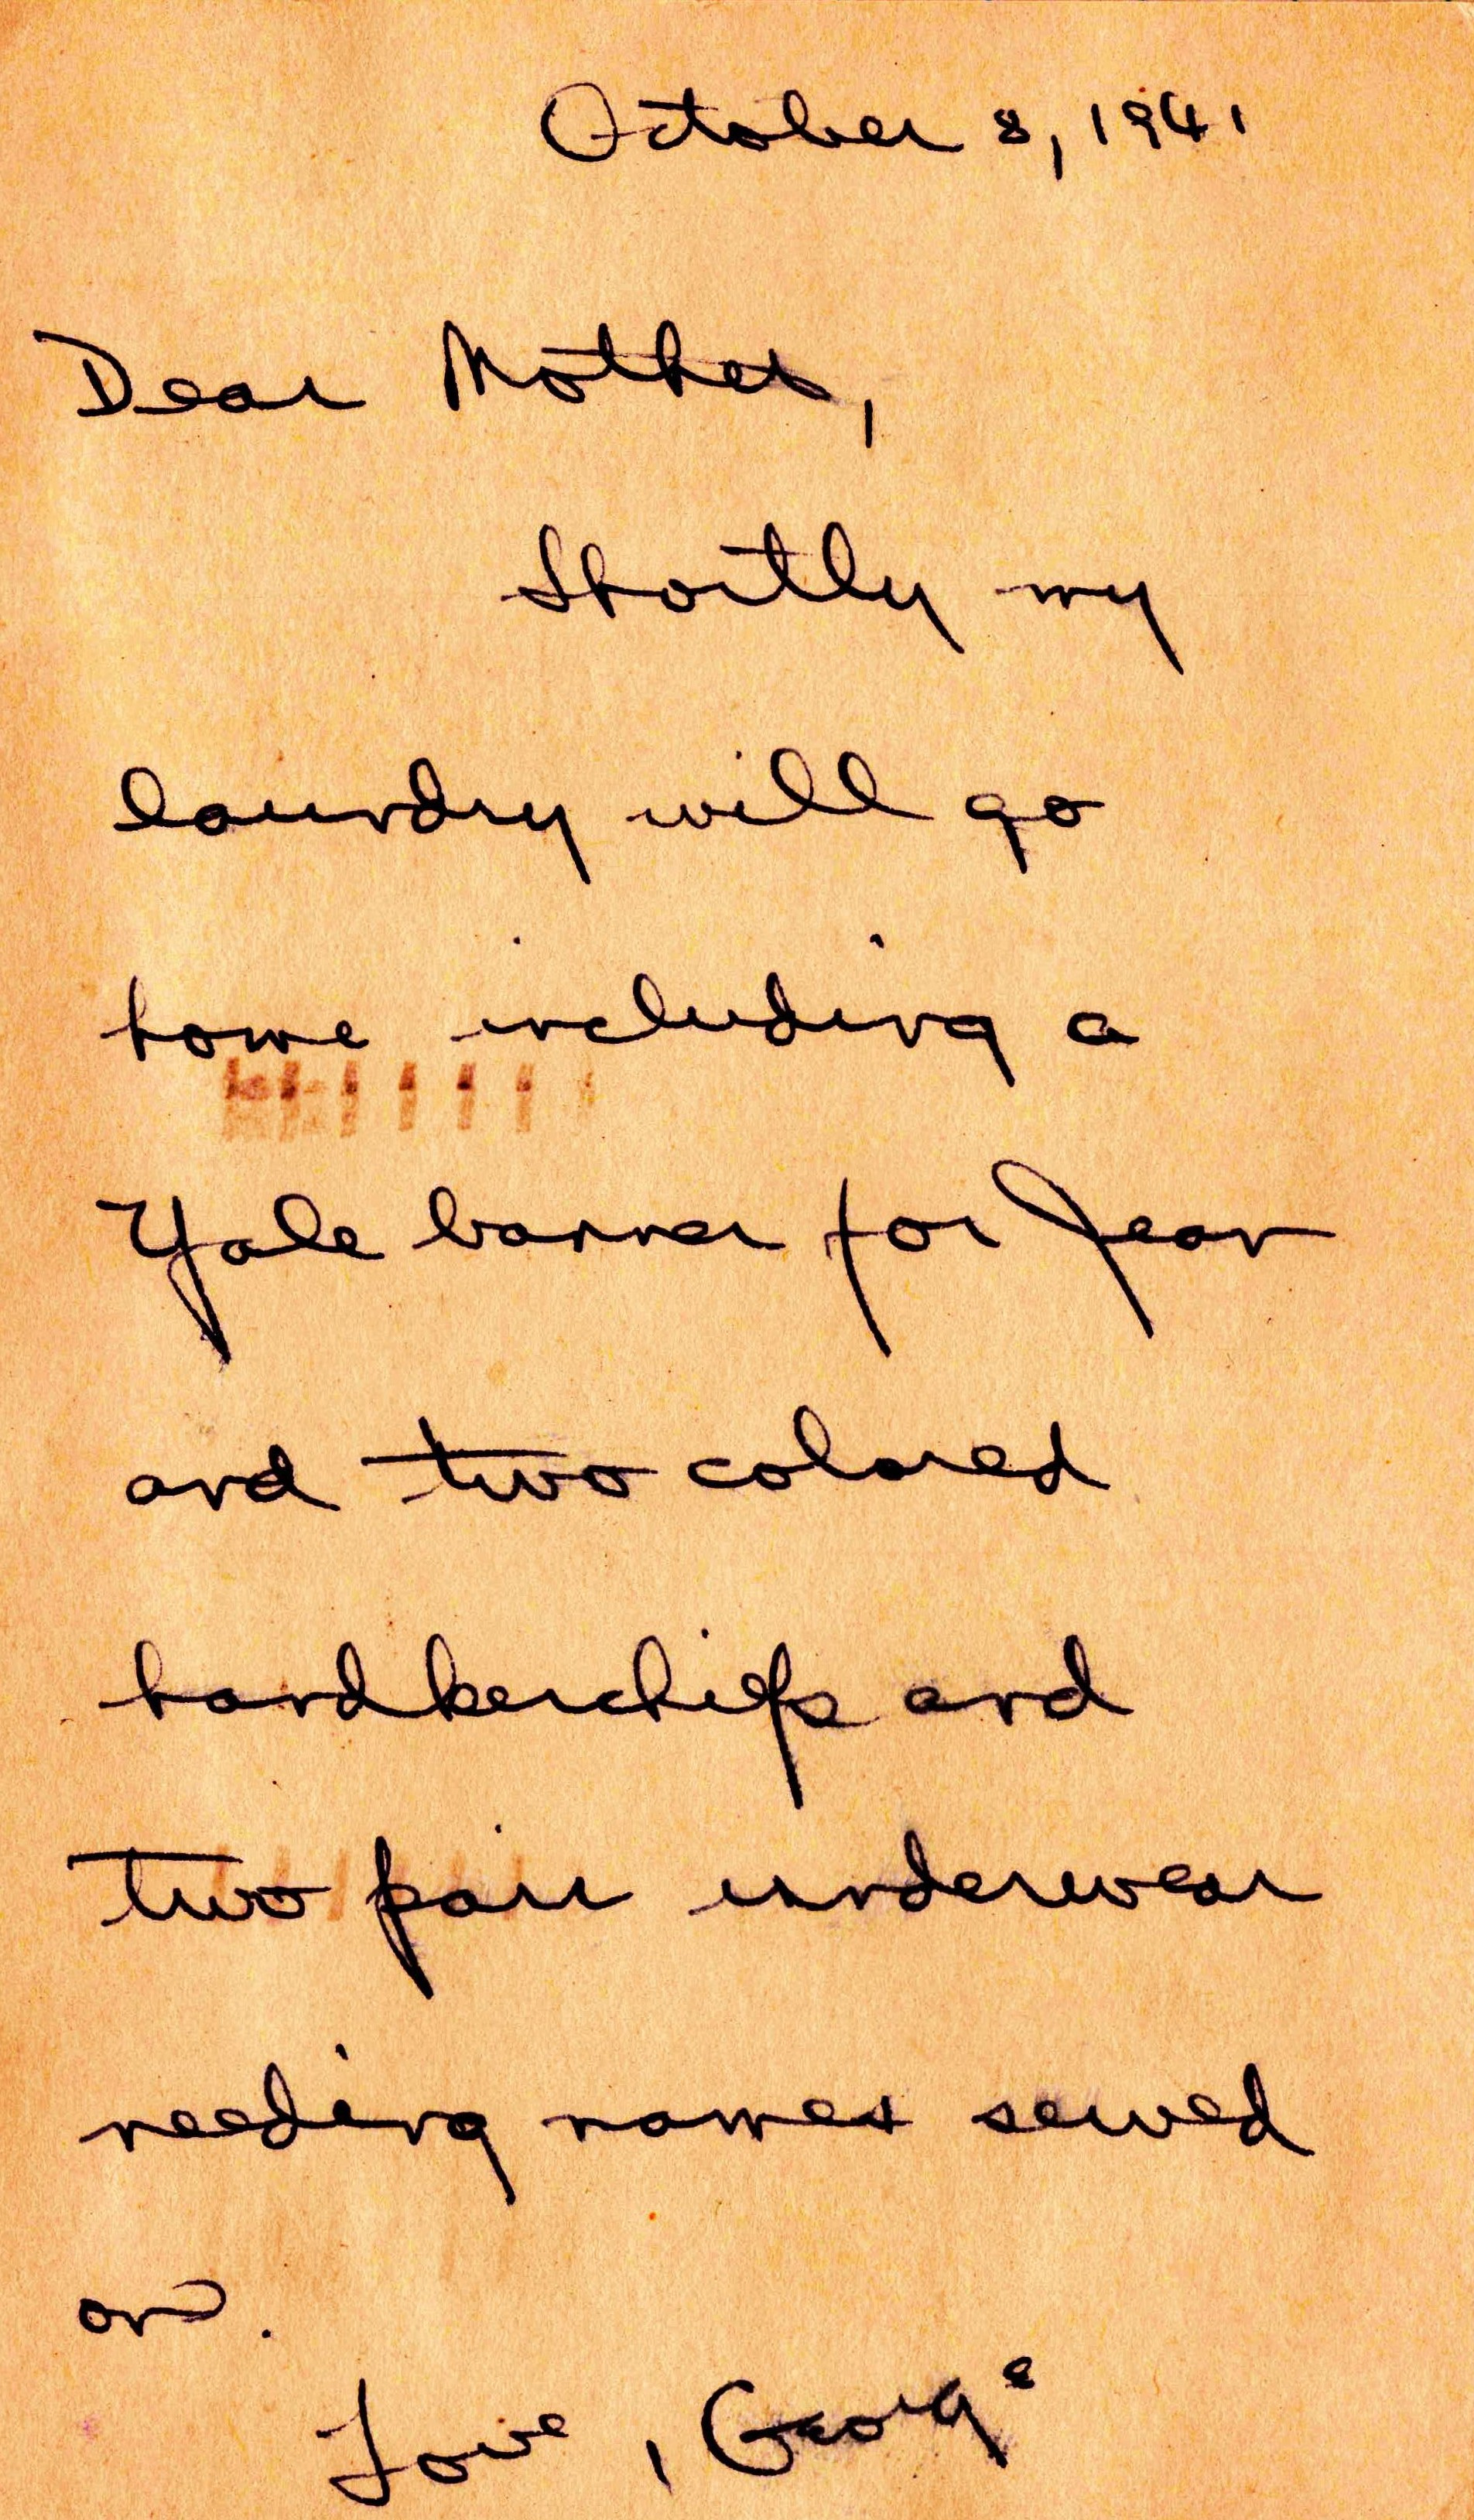 October 8, 1941
Dear Mother,
Shortly my
laundry will go
home including a
Yale banner for Jean
and two colored
handkerchiefs and
two pair underwear
needing names sewed
on.
Love, George